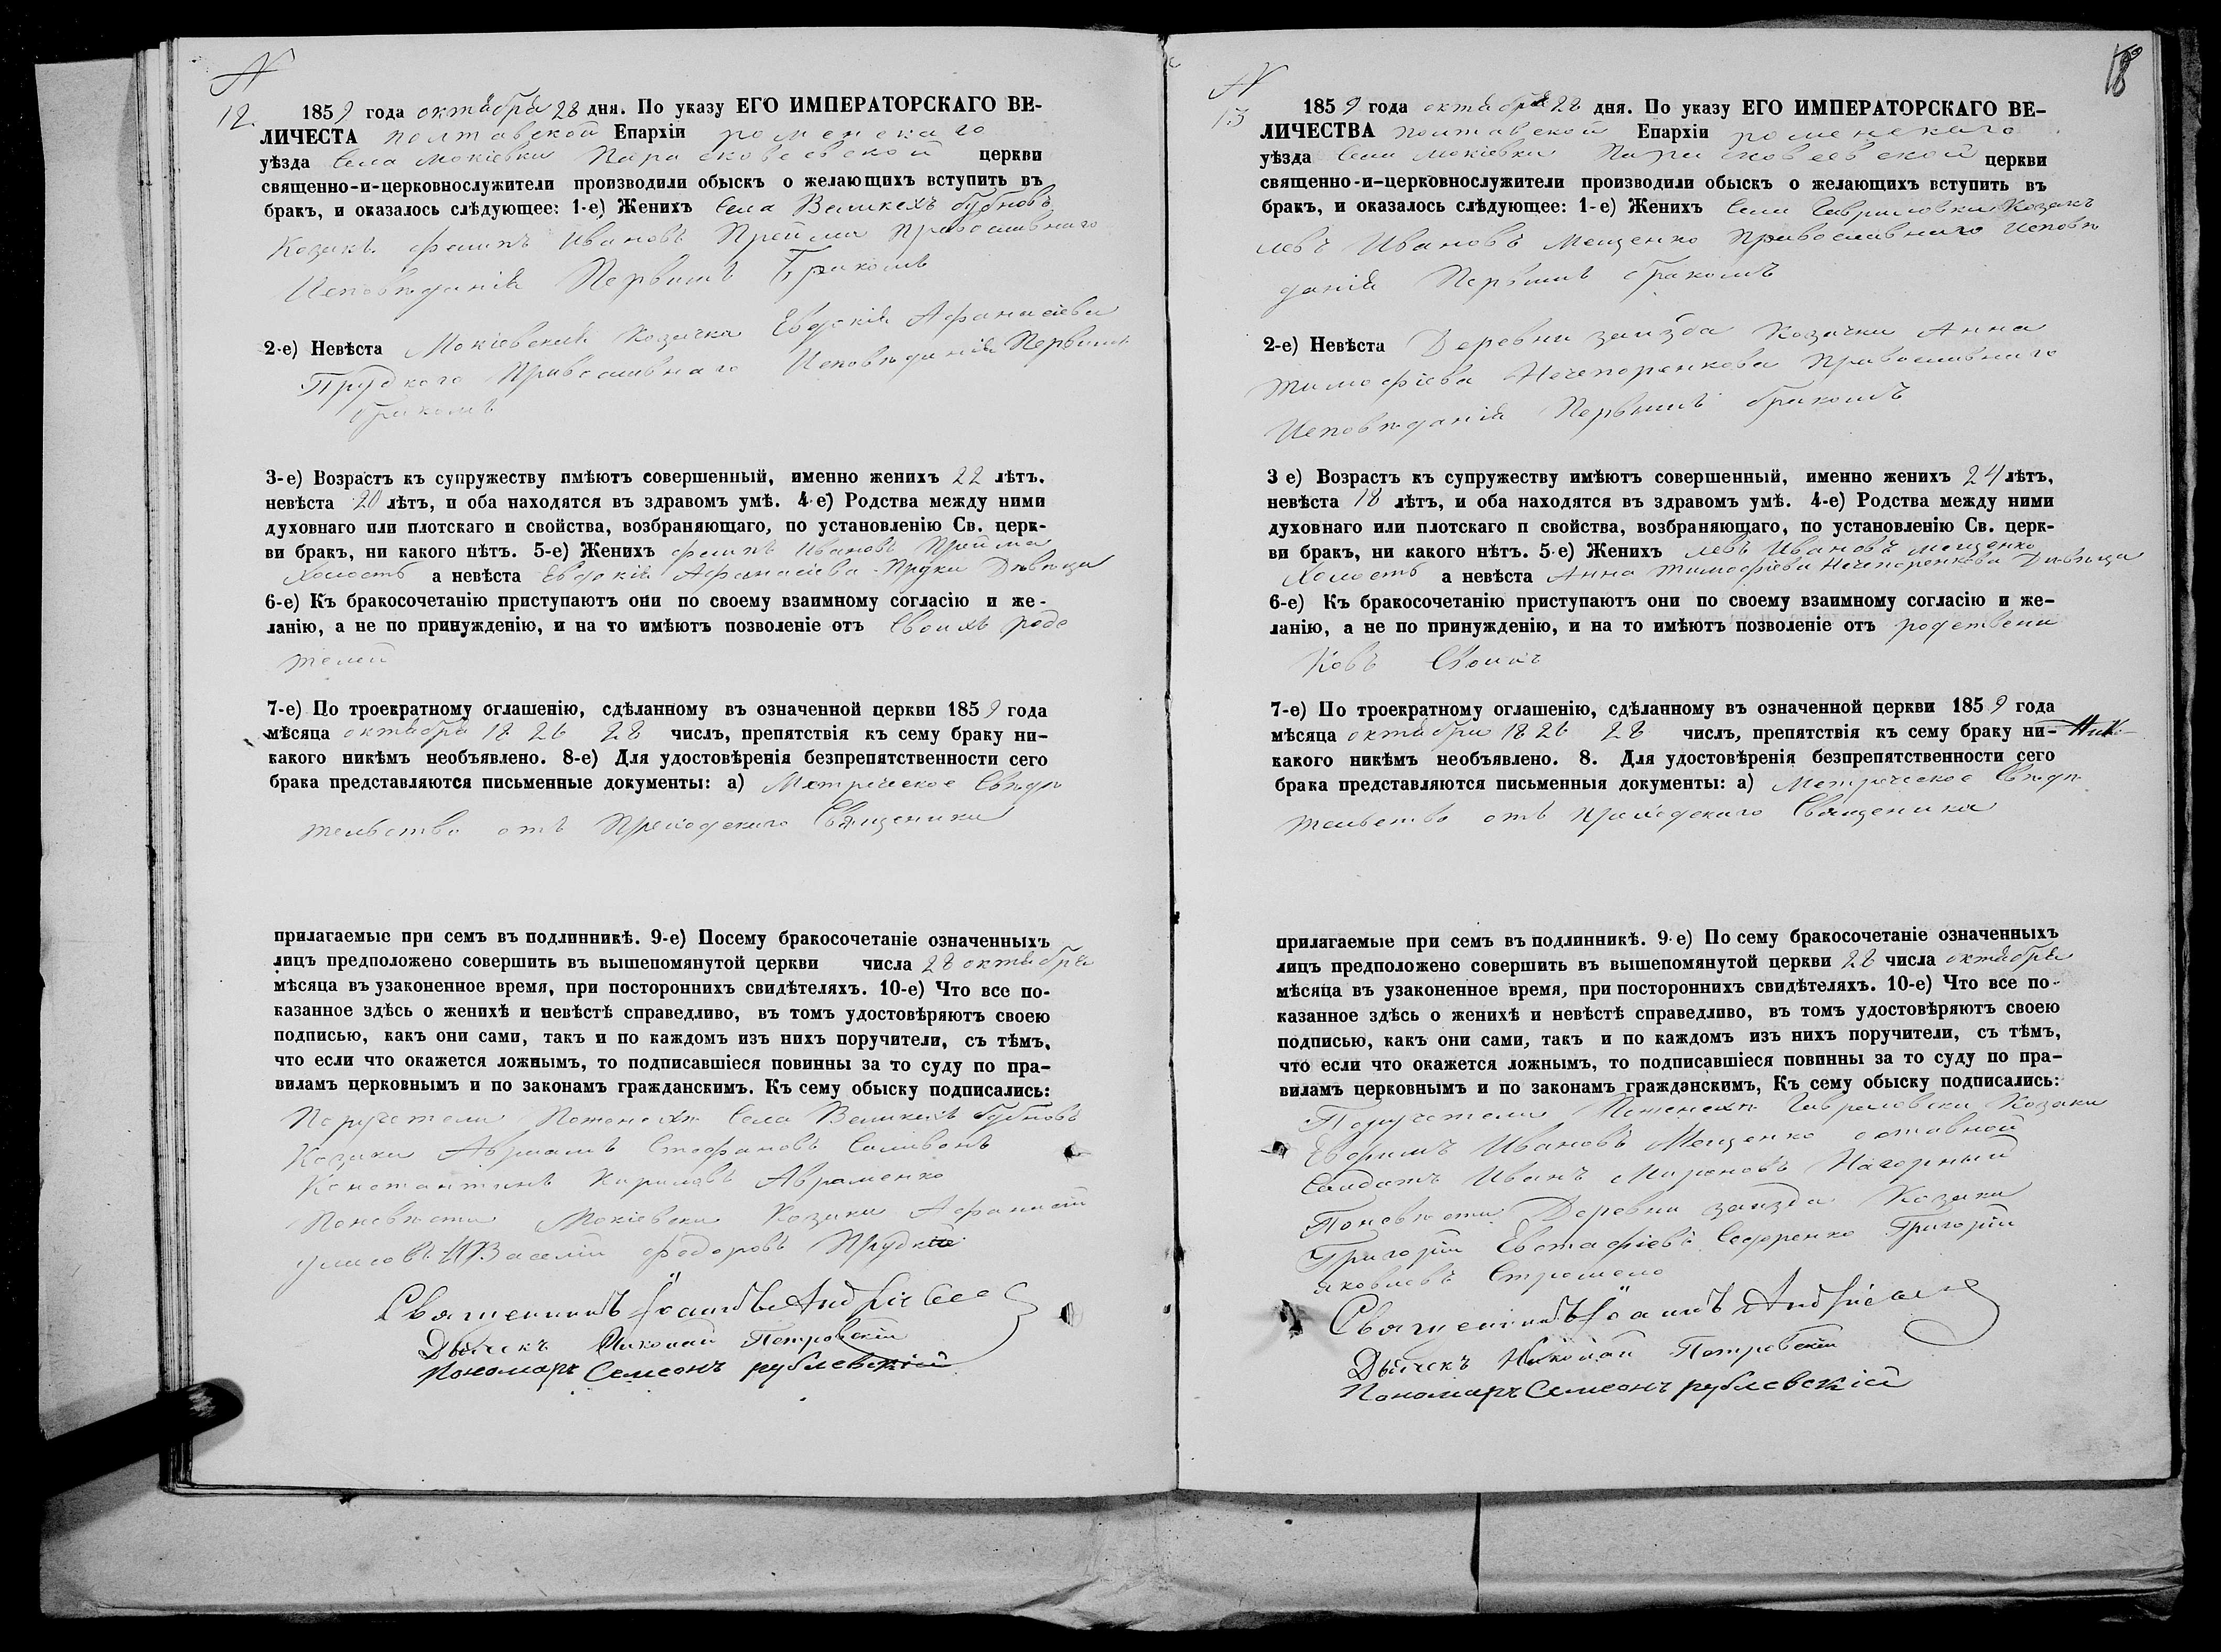 N
12.
1859 года октября 28 дня. По указу ЕГО ИМПЕРАТОРСКАГО ВЕ-
ЛИЧЕСТА полтавской Епархіи роменскаго
уѣзда села мокіевки Парасковеевской церкви
священно-и-церковнослужители производили обыскъ о желающихъ вступить въ
бракъ, и оказалось слѣдующее: 1-е) Женихъ села Великехъ бубновъ
Козакъ филипъ Ивановъ Прейма православнаго
Исповѣданія Первимъ Бракомъ
2-е) Невѣста Мокіевская Козачка Евдокія Афанасіева
Прудкого Православнаго Исповѣданія Первимъ
бракомъ
3-е) Возрастъ къ супружеству имѣютъ совершенный, именно женихъ 22 лѣтъ.
невѣста 20 лѣтъ, и оба находятся въ здравомъ умѣ. 4-е) Родства между ними
духовнаго или плотскаго и свойства, возбраняющаго, по установленію Св. церк-
ви бракъ, ни какого нѣтъ. 5-е) Женихъ филипъ Ивановъ Прейма
Холостъ а невѣста Евдокія Афанасіева Пруки Дѣвица
6-е) Къ бракосочетанію приступаютъ они по своему взаимному согласію и же-
ланію, а не по принужденію, и на то имѣютъ позволеніе отъ Своихъ роде
телей
7-е) По троекратному оглашенію, сдѣланному въ означенной церкви 1859 года
мѣсяца октября 18 26 28 числъ, препятствія къ сему браку ни-
какого никѣмъ необъявлено. 8-е) Для удостовѣренія безпрепятственности сего
брака представляются письменные документы: а) Метрическое Свѣдѣ
тельство отъ Преходскаго Священика
прилагаемые при семъ въ подлинникѣ. 9-е) Посему бракосочетаніе означенныхъ
лицъ предположено совершить въ вышепомянутой церкви числа 28 октября
мѣсяца въ узаконенное время, при постороннихъ свидѣтеляхъ. 10-е) Что все по-
казанное здѣсь о женихѣ и невѣстѣ справедливо, въ томъ удостовѣряютъ своею
подписью, какъ они сами, такъ и по каждомъ изъ нихъ поручители, съ тѣмъ,
что если что окажется ложнымъ, то подписавшіеся повинны за то суду по пра-
виламъ церковнымъ и по законамъ гражданскимъ. Къ сему обыску подписались:
Поручетели Поженехѣ Села Великехъ бубновъ
Козаки Стефановъ
Константинъ Кириловъ Авраменко
Поневѣсти Мокіевски Козаки Афанасій
Василій федоровъ
Священникъ Іоаннъ Андріевс
Дьячекъ Николай Петровскій
Пономарь Семеонъ рублевскій
18
N
13
1859 года октября 28 дня. По указу ЕГО ИМПЕРАТОРСКАГО ВЕ-
ЛИЧЕСТВА полтавской Епархіи роменскаго
уѣзда села мокіевки Парасковеевской церкви
священно-и-церковнослужители производили обыскъ о желающихъ вступить въ
бракъ, и оказалось слѣдующее: 1-е) Женихъ села Гавриловки Козакъ
левъ Ивановъ Мещенко Православнаго Исповѣ
данія Первимъ бракомъ
2-е) Невѣста Деревни заизда Козачки Анна
тимофіева Нечепоренкова Православнаго
Исповѣданія Первымъ бракомъ
3 е) Возрастъ къ супружеству имѣютъ совершенный, именно женихъ 24 лѣтъ,
невѣста 18 лѣтъ, и оба находятся въ здравомъ умѣ. 4-е) Родства между ними
духовнаго или плотскаго п свойства, возбраняющаго, по установленію Св. церк-
ви бракъ, ни какого нѣтъ. 5-е) Женихъ левъ Ивановъ мещенко
Холостъ а невѣста Анна тимофіева Нечепоренкова Дѣвица
6-е) Къ бракосочетанію приступаютъ они по своему взаимному согласію и же-
ланію, а не по принужденію, и на то имѣютъ позволеніе отъ родствени
ковъ Своихъ
7-е) По троекратному оглашенію, сдѣланному въ означенной церкви 1859 года
мѣсяца октября 18 26 28 числъ, препятствія къ сему браку ни-
какого никѣмъ необъявлено. 8. Для удостовѣренія безпрепятственности сего
брака представляются письменныя документы: а) Метрическое Свѣдѣ
тельство отъ Преходскаго Священика
прилагаемые при семъ въ подлинникѣ. 9-е) По сему бракосочетаніе означенныхъ
лицъ предположено совершить въ вышепомянутой церкви 28 числа октября
мѣсяца въ узаконенное время, при постороннихъ свидѣтеляхъ. 10-е) Что все по-
казанное здѣсь о женихѣ и невѣстѣ справедливо, въ томъ удостовѣряютъ своею
подписью, какъ они сами, такъ и по каждомъ изъ нихъ поручители, съ тѣмъ,
что если что окажется ложнымъ, то подписавшіеся повинны за то суду по пра-
виламъ церковнымъ и по законамъ гражданскимъ, Къ сему обыску подписались:
Поручетели Поженехѣ Гавриловски Козаки
Ивановъ Мещенко отставной
Салдатъ Иванъ Мироновъ Нагорный
Поневѣсти Деревни заизда Козаки
Григорій Евстафіевъ Сидоренко Григорій
яковлевъ
Священникъ Іоаннъ Андріев
Дьячекъ Николай Петровскій
Пономарь Семеонъ рублевскій